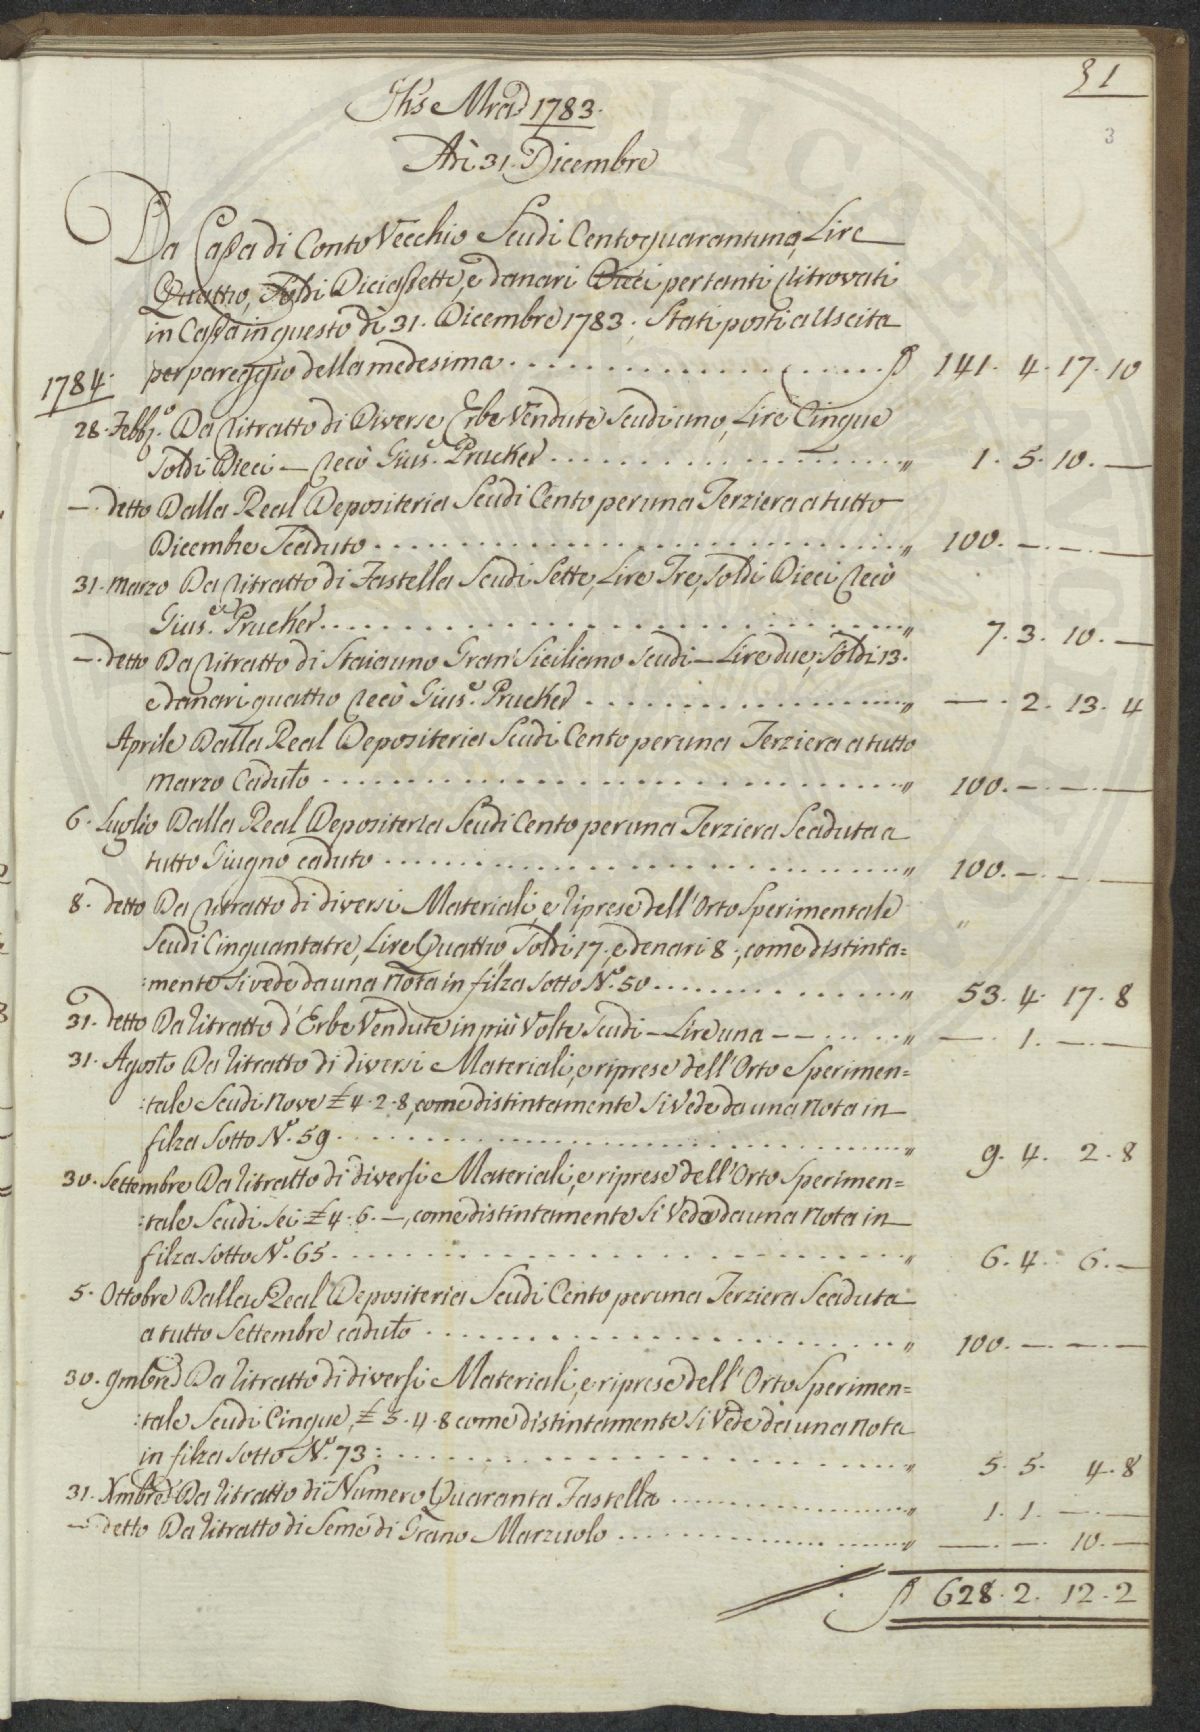 31
3
Ihs Mra 1783.
Adì 31. Dicembre
Da Cassa di Conto Vecchio Scudi Centoquarantuno, Lire
Quattro, Soldi Diciassette, e danari Dieci per tanti ritrovati
in Cassa in questo dì 31. Dicembre 1783., Stati posti a Uscita
per pareggio della medesima . . . 141. 4. 17. 10
1784.
28. Febb.º Da ritratto di Diverse Erbe Vendute Scudi uno, Lire Cinque
Soldi Dieci — recò Gius.e Prucker . . . " 1. 5. 10. —
— detto Dalla Real Depositeria Scudi Cento per una Terziera a tutto
Dicembre Scaduto . . . " 100. —. —. —
31. Marzo Da ritratto di Fastella Scudi Sette, Lire Tre, Soldi Dieci recò
Gius.e Prucker . . . " 7. 3. 10. —
— detto Da ritratto di Staia uno Gran Siciliano Scudi — Lire due, Soldi 13.
e danari quattro recò Gius.e Prucker . . . " —. 2. 13. 4
Aprile Dalla Real Depositeria Scudi Cento per una Terziera a tutto
Marzo Caduto . . . " 100. —. —. —
6. Luglio Dalla Real Depositeria Scudi Cento per una Terziera Scaduta a
tutto Giugno caduto . . . " 100. —. —. —
8. detto Da ritratto di diversi Materiali, e riprese dell'Orto Sperimentale
Scudi Cinquantatre, Lire Quattro, Soldi 17, e denari 8., come distinta=
:mente si vede da una Nota in filza sotto N.º 50 . . . " 53. 4. 17. 8
31. detto Da ritratto d'Erbe Vendute in più Volte Scudi — Lire una — — . . . " —. 1. —. —
31. Agosto Da ritratto di diversi Materiali, e riprese dell'Orto Sperimen=
:tale Scudi Nove £ 4. 2. 8, come distintamente si Vede da una Nota in
filza sotto N.º 59 . . . " 9. 4. 2. 8
30. Settembre Da ritratto di diversi Materiali, e riprese dell'Orto Sperimen=
:tale Scudi Sei £ 4. 6. —, come distintamente si Vede da una Nota in
filza sotto N.º 65 . . . " 6. 4. 6. —
5. Ottobre Dalla Real Depositeria Scudi Cento per una Terziera Scaduta
a tutto Settembre caduto . . . " 100. —. —. —
30. 9mbre Da ritratto di diversi Materiali, e riprese dell'Orto Sperimen=
:tale Scudi Cinque, £ 5. 4. 8 come distintamente si Vede da una Nota
in filza sotto N.º 73: . . . " 5. 5. 4. 8
31. Xmbre Da ritratto di Numero Quaranta Fastella . . . " 1. 1. —. —
— detto Da ritratto di Seme di Grano Marzuolo . . . " —. —. 10. —
628. 2. 12. 2